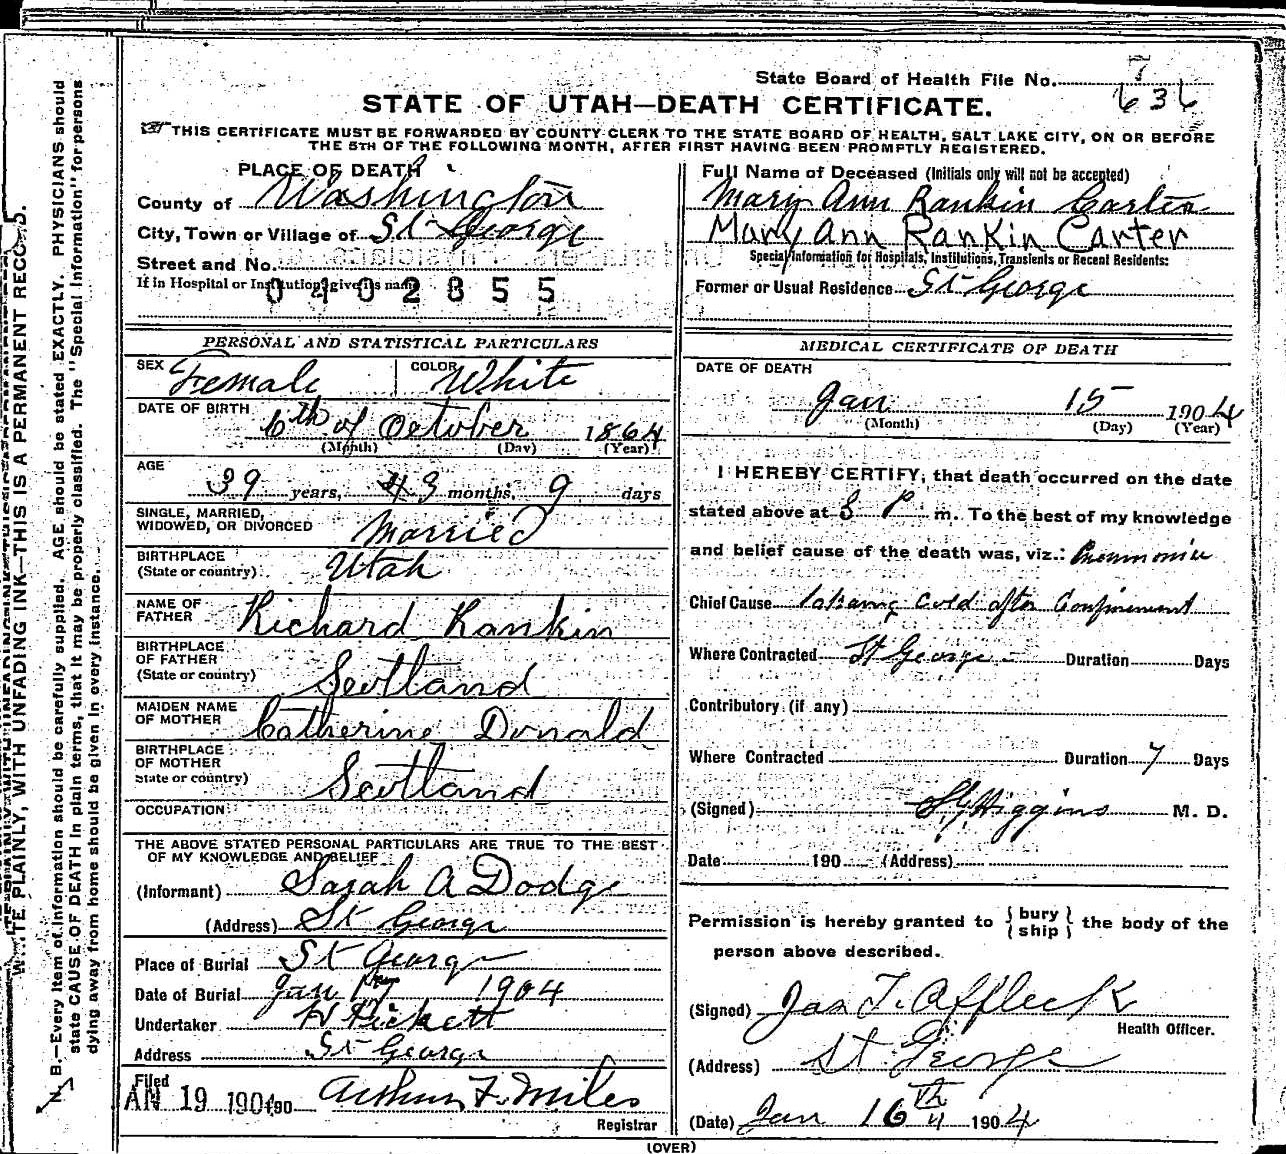 State Board of Health File No. 7
636
STATE OF UTAH—DEATH CERTIFICATE.
THIS CERTIFICATE MUST BE FORWARDED BY COUNTY CLERK TO THE STATE BOARD OF HEALTH, SALT LAKE CITY, ON OR BEFORE
THE 5TH OF THE FOLLOWING MONTH, AFTER FIRST HAVING BEEN PROMPTLY REGISTERED.
PLACE OF DEATH
County of Washington
City, Town or Village of St George
Street and No.
If in Hospital or Institution, give its name
0402855
Full Name of Deceased (Initials only will not be accepted)
Mary Ann Rankin Carter
Mary Ann Rankin Carter
Special Information for Hospitals, Institutions, Transients or Recent Residents:
Former or Usual Residence St George
PERSONAL AND STATISTICAL PARTICULARS
SEX Female COLOR White
DATE OF BIRTH
6th of October 1864
(Month) (Day) (Year)
AGE
39 years, 3 months, 9 days
SINGLE, MARRIED,
WIDOWED, OR DIVORCED Married
BIRTHPLACE
(State or country) Utah
NAME OF
FATHER Richard Rankin
BIRTHPLACE
OF FATHER
(State or country) Scotland
MAIDEN NAME
OF MOTHER Catherine Donald
BIRTHPLACE
OF MOTHER
State or country) Scotland
OCCUPATION
THE ABOVE STATED PERSONAL PARTICULARS ARE TRUE TO THE BEST
OF MY KNOWLEDGE AND BELIEF
(Informant) Sarah A Dodge
(Address) St George
Place of Burial St George
Date of Burial Jan 17 1904
Undertaker H Pickett
Address St George
Filed
AN 19 1904 190 Arthur F. Miles
Registrar
MEDICAL CERTIFICATE OF DEATH
DATE OF DEATH
Jan 15 1904
(Month) (Day) (Year)
I HEREBY CERTIFY, that death occurred on the date
stated above at 8 P m. To the best of my knowledge
and belief cause of the death was, viz.: Pneumonia
Chief Cause taking cold after Confinement
Where Contracted St George Duration Days
Contributory (if any)
Where Contracted Duration 7 Days
(Signed) Higgins M. D.
Date 190 (Address)
Permission is hereby granted to { bury ship } the body of the
person above described.
(Signed) Jas T. Affleck
Health Officer.
(Address) St George
(Date) Jan 16th 1904
(OVER)
WRITE PLAINLY, WITH UNFADING INK—THIS IS A PERMANENT RECORD.
N. B.—Every item of information should be carefully supplied. AGE should be stated EXACTLY. PHYSICIANS should
state CAUSE OF DEATH in plain terms, that it may be properly classified. The "Special Information" for persons
dying away from home should be given in every instance.